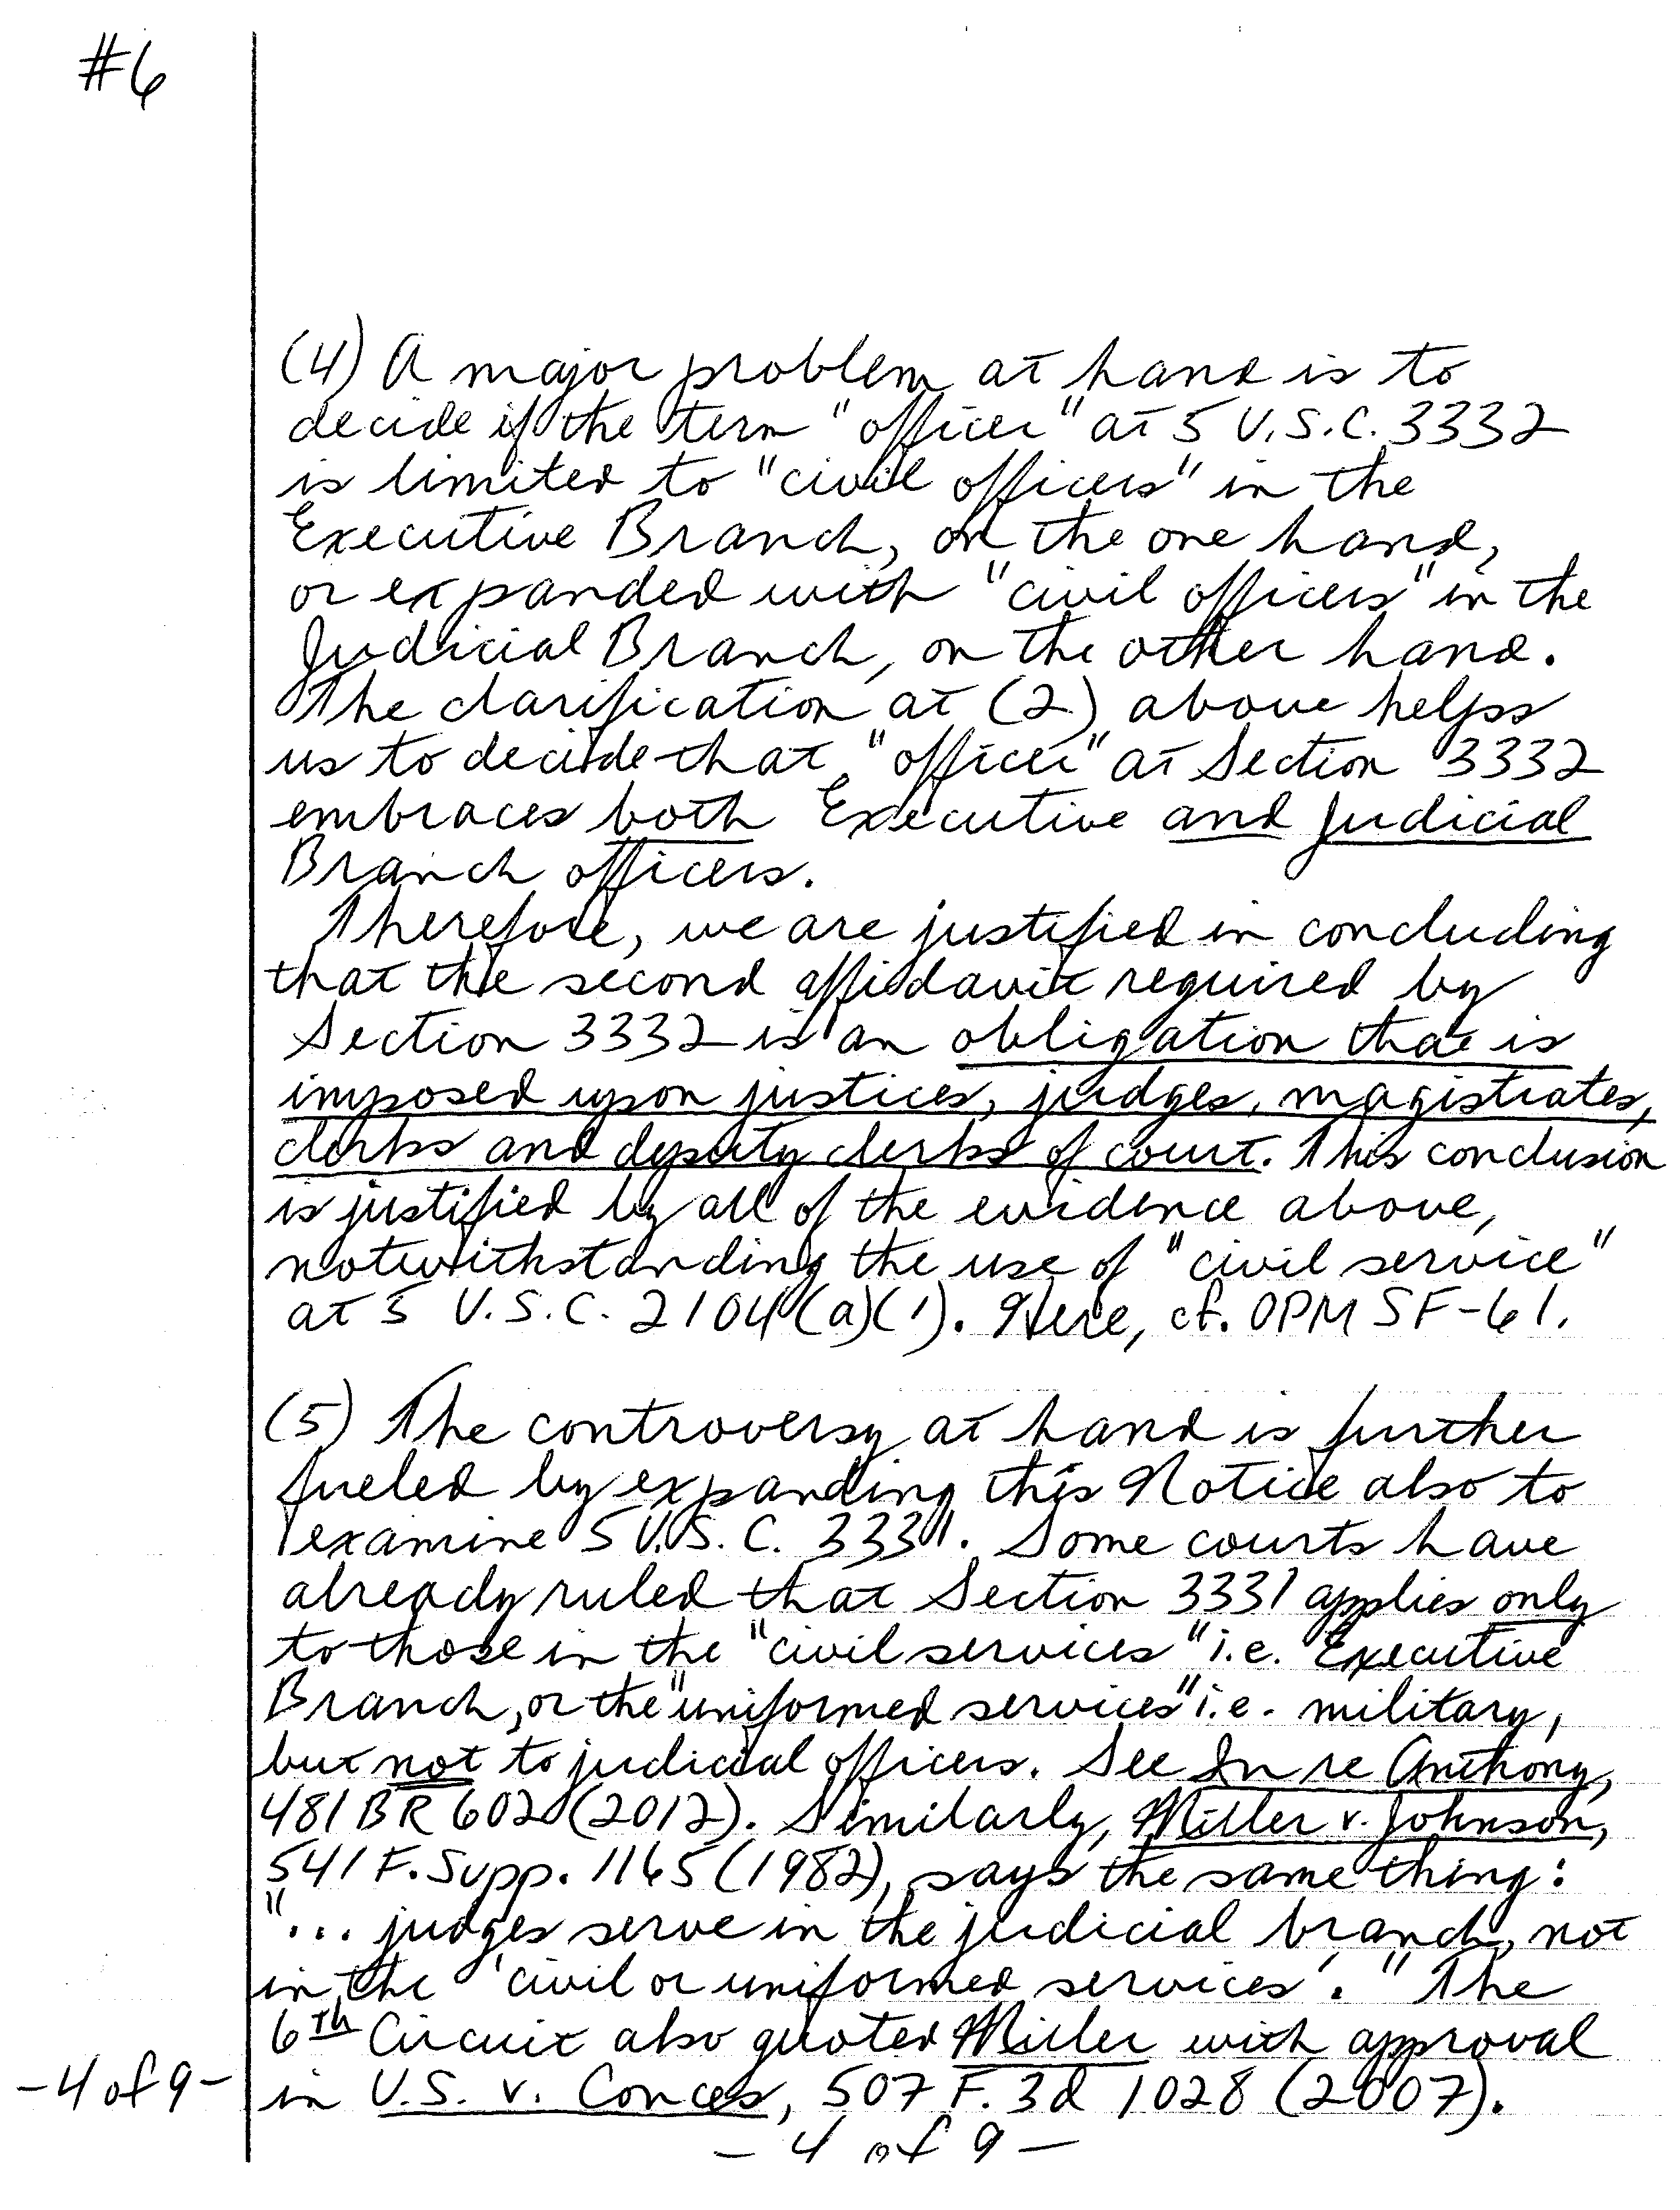 #6
(4) A major problem at hand is to
decide if the term "officer" at 5 U.S.C. 3332
is limited to "civil officers" in the
Executive Branch, on the one hand,
or expanded with "civil officers" in the
Judicial Branch, on the other hand.
The clarification at (2) above helps
us to decide that "officer" at Section 3332
embraces both Executive and Judicial
Branch officers.
Therefore, we are justified in concluding
that the second affidavit required by
Section 3332 is an obligation that is
imposed upon justices, judges, magistrates,
clerks and deputy clerks of court. This conclusion
is justified by all of the evidence above,
notwithstanding the use of "civil service"
at 5 U.S.C. 2104(a)(1). Here, cf. OPM SF-61.
(5) The controversy at hand is further
fueled by expanding this Notice also to
examine 5 U.S.C. 3331. Some courts have
already ruled that Section 3331 applies only
to those in the "civil services" i.e. Executive
Branch, or the "uniformed services" i.e. military,
but not to judicial officers. See In re Anthony,
481 BR 602 (2012). Similarly, Miller v. Johnson,
541 F. Supp. 1165 (1982), says the same thing:
"... judges serve in the judicial branch, not
in the 'civil or uniformed services'." The
6th Circuit also quoted Miller with approval
in U.S. v. Conces, 507 F. 3d 1028 (2007).
-4 of 9-
- 4 of 9 -